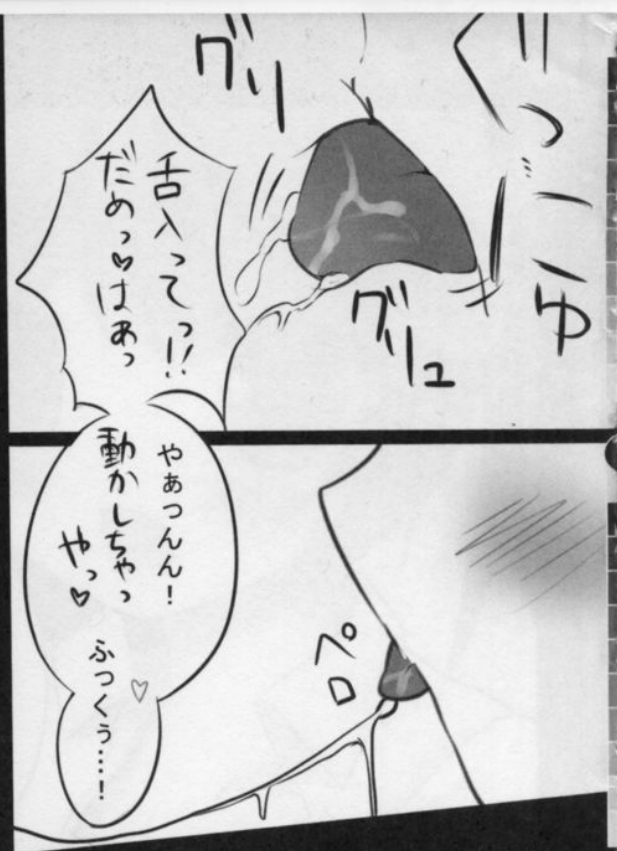 ぐっにゅ
グリ
グリュ
舌入ってっ!!
だめっ♥はあっ
やぁつんん!
動かしちゃっ
やっ♥
ふっくぅ…!♡
ペロ